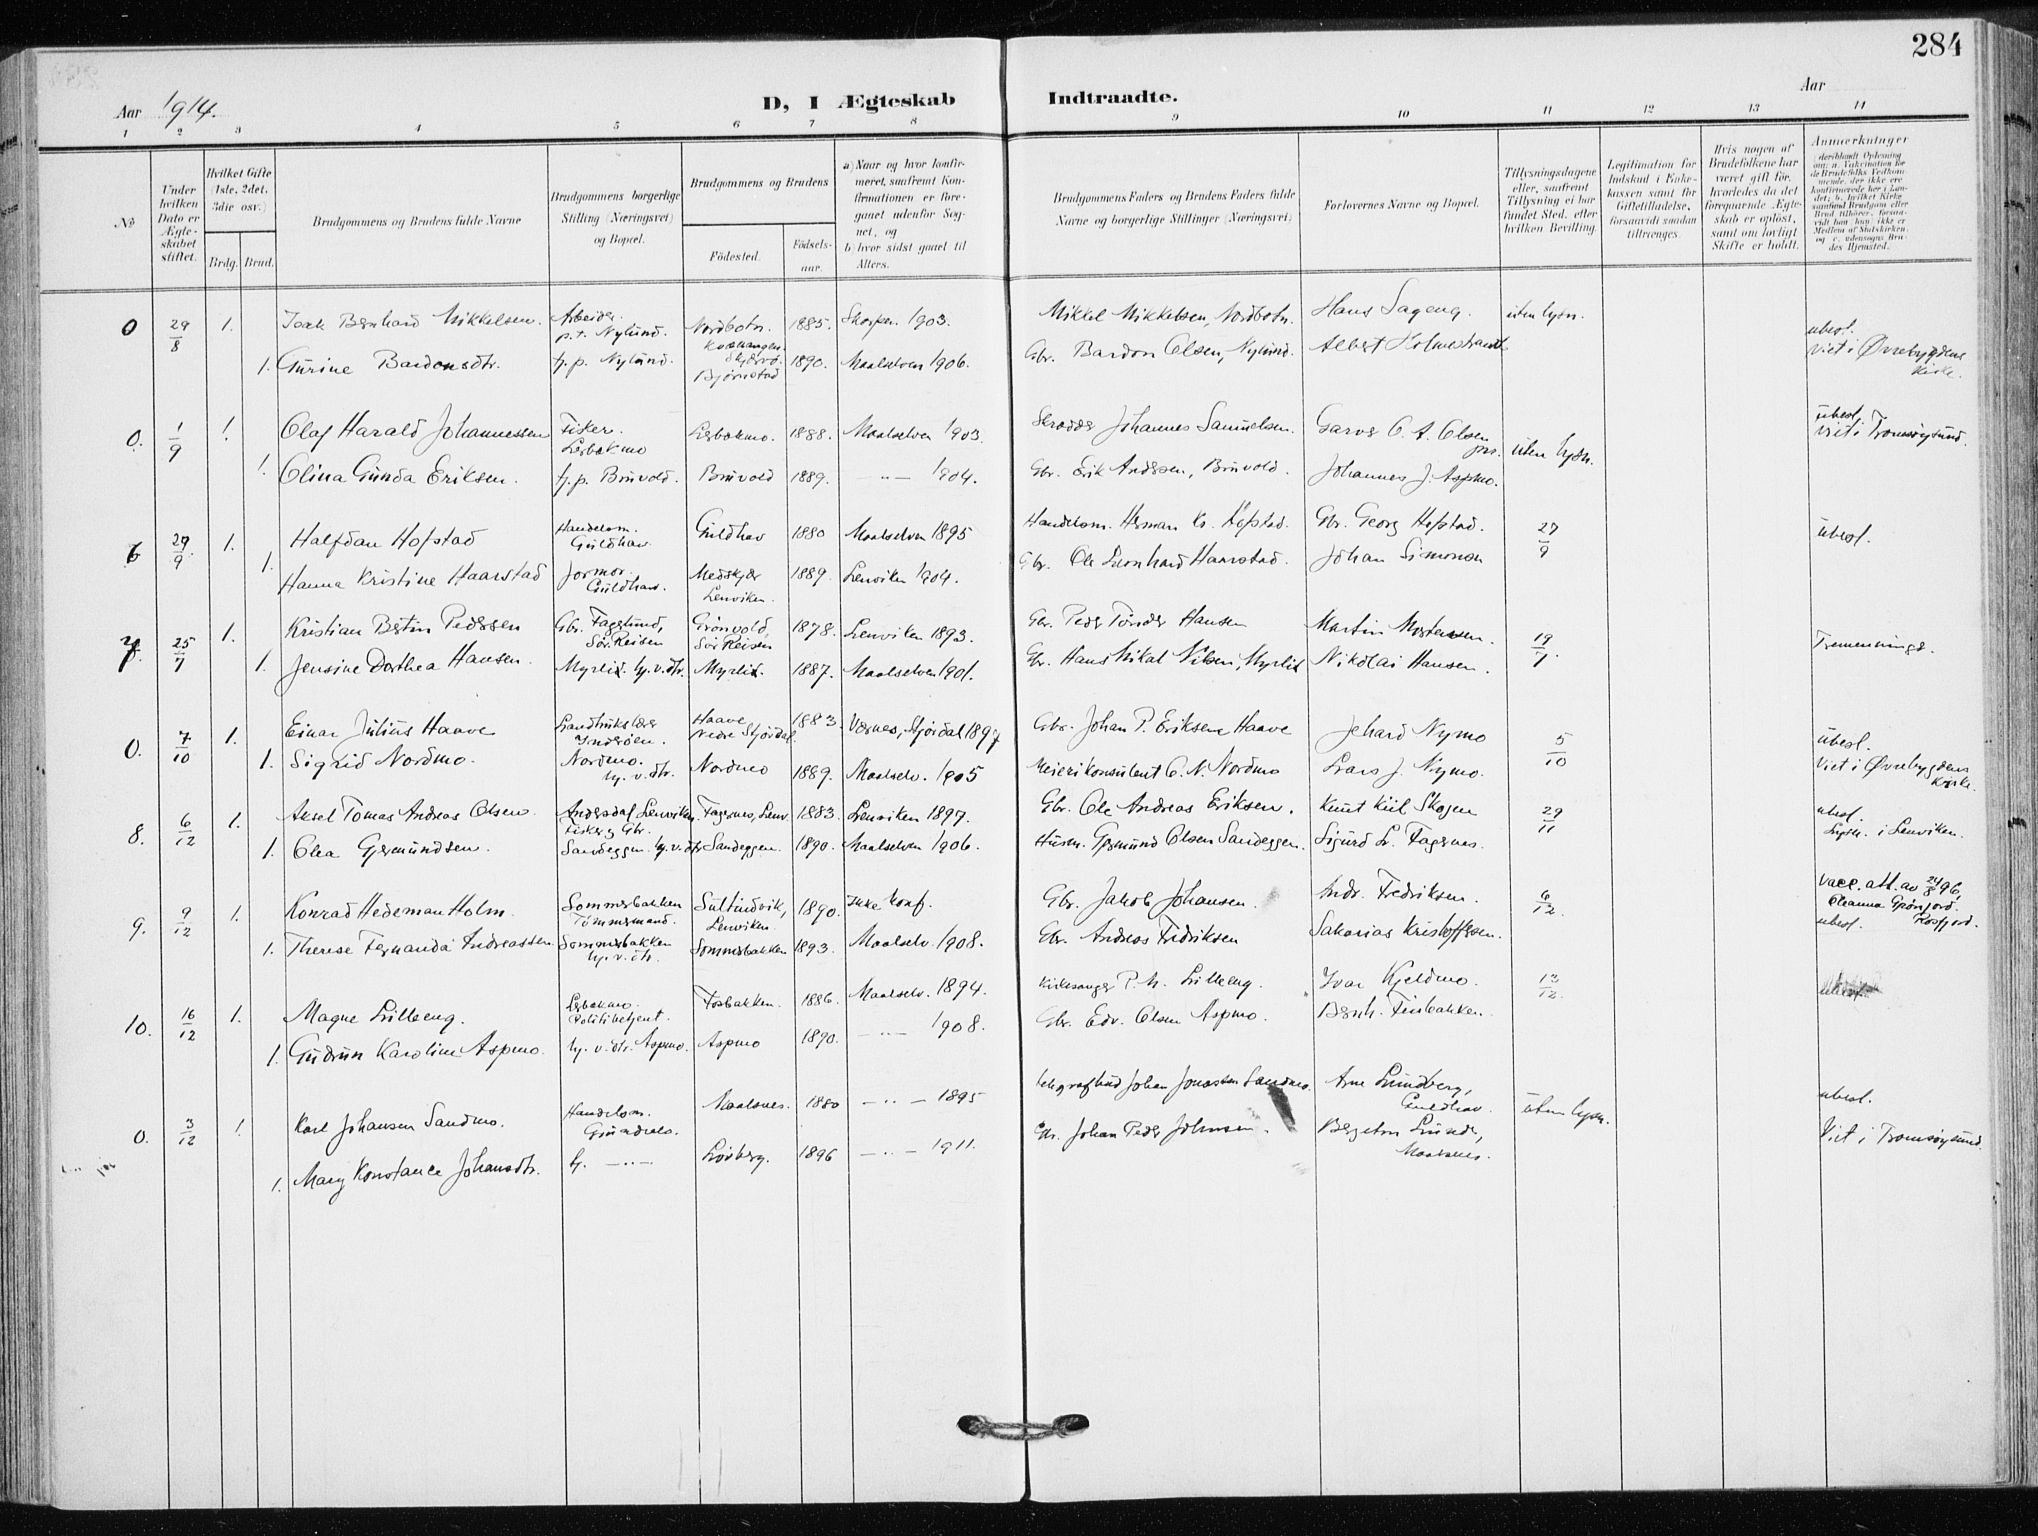 284
Aar 1914.
D, I Ægteskab Indtraadte.
Aar
1 2 3 4 5 6 7 8 9 10 11 12 13 14
No
Under hvilken Dato er Ægteskabet stiftet.
Hvilket Gifte (1ste, 2det, 3die osv.)
Brdg. Brud.
Brudgommens og Brudens fulde Navne
Brudgommens borgerlige Stilling (Næringsvei) og Bopæl.
Brudgommens og Brudens
Födested. Födselsaar.
a) Naar og hvor konfirmeret, saafremt Konfirmationen er foregaaet udenfor Sognet, og
b) hvor sidst gaaet til Alters.
Brudgommens Faders og Brudens Faders fulde Navne og borgerlige Stillinger (Næringsvei)
Forlovernes Navne og Bopæl.
Tillysningsdagene eller, saafremt Tillysning ei har fundet Sted, efter hvilken Bevilling.
Legitimation for Indskud i Enkekassen samt for Giftetilladelse, forsaavidt saadan tiltrænges.
Hvis nogen af Brudefolkene har været gift før, hvorledes da det foregaaende Ægteskab er opløst, samt om lovligt Skifte er holdt.
Anmærkninger
0 29/8 1. Isak Bernhard Mikkelsen. Arbeider p.t. Nylund. Nordbotn. Kvænangen Skjærvø 1885. Skjerfvø 1903. Mikkel Mikkelsen, Nordbotn. Hans Sageng. uten lysn. ubesl.
1. Gurine Bardonsdtr. hj.p. Nylund. Bjørnstad 1890. Maalselven 1906. Gbr. Bardon Olsen, Nylund. Albert Holmestrand Viet i Øvrebygdens Kirke.
0. 1/9 1. Olaf Harald Johannessen Fisker. Lerbakmo Lerbakmo. 1888. Maalselven 1903. Skrædder Johannes Samuelsen. Garver O. A. Olsen jns. uten lysn. ubesl. Viet i Tromsøysund.
1. Olina Gunda Eriksen. hj.p. Bruvold. Bruvold 1889. —"— 1904. Gbr. Erik Andersen, Bruvold. Johannes J. Aspmo.
6 29/9. 1. Halfdan Hofstad Handelsm. Guldhav Guldhav 1880 Maalselven 1895 Handelsm. Herman Kr. Hofstad. Gbr. Georg Hofstad. 27/9 ubesl.
1. Hanna Kristine Haarstad Jormor. Guldhav. Medskjær Lenviken. 1889. Lenviken 1904. Gbr. Ole Leonhard Haarstad. Johan Simonsen
7. 25/7 1. Kristian Bertin Pedersen Gbr. Fagerlund, Sør.Reisen Grønvold, Sør Reisen 1878. Lenviken 1893. Gbr. Peder Tønder Hansen Martin Mortensen. 19/7. Tremenninge.
1. Jensine Dorthea Hansen. Myrlid. hj.v.dtr. Myrlid. 1887. Maalselven 1901. Gbr. Hans Mikal Nilsen, Myrlid Nikolai Hansen.
0. 7/10 1. Einar Julius Haave Landbrukslærer Inderøen. Haave Nedre Stjørdal. 1883. Værnes, Stjørdal 1897 Gbr. Johan P. Eriksen Haave Jehard Nymo 5/10 ubesl.
1. Sigrid Nordmo. Nordmo. hj. v. dtr. Nordmo 1889. Maalselv. 1905 Meierikonsulent O. N. Nordmo Lars J. Nymo. Viet i Øvrebygdens Kirke.
8. 6/12 1. Aksel Tomas Andreas Olsen Andersdal, Lenviken. Fisker, Gbr. Fagernes, Lenv. 1883. Lenviken 1897. Gbr. Ole Andreas Eriksen. Knut Kiil Skogen 29/11 ubesl. Lysn. i Lenviken.
1. Olea Gjermundsen. Sandeggen. hj.v.dtr Sandeggen. 1890. Maalselven 1906. Husm. Gjermund Olsen Sandeggen. Sigurd L. Fagernes.
9. 9/12 1. Konrad Hedeman Holm. Sommerbakken Tømmermand. Sultindvik, Lenviken. 1890. Ikke konf. Gbr. Jakob Johansen. Andr. Fredriksen. 6/12. Vacc. att. av 24/8 96, Oleanna Grønfjord. Rosfjord.
1. Therese Fernanda Andreassen Sommerbakken hj.v.dtr. Sommerbakken 1893. Maalselv. 1908. Gbr. Andreas Fredriksen Sakarias Kristoffersen. ubesl.
10. 16/12 1. Magne Lilleeng. Lerbakmo. Politibetjent. Fosbakken. 1886. Maalselv. 1894. Kirkesanger P. M. Lilleeng. Ivar Kjeldmo. 13/12. ubesl.
1. Gudrun Karoline Aspmo. hj. v. dtr. Aspmo. Aspmo 1890. —"— 1908. Gbr. Edv. Olsen Aspmo. Bernh. Finbakken.
0. 3/12 1. Karl Johansen Sandmo. Handelsm. Grundnes. Maalsnes. 1880 —"— 1895 Telegrafbud Johan Jonassen Sandmo. Arne Lundberg, Guldhav. uten lysn. ubesl.
1. Mary Konstance Johansdtr. hj. —"— Løvberg. 1896 —"— 1911. Gbr. Johan Peder Johnsen. Bergeton Lunde, Maalsnes. Viet i Tromsøysund.